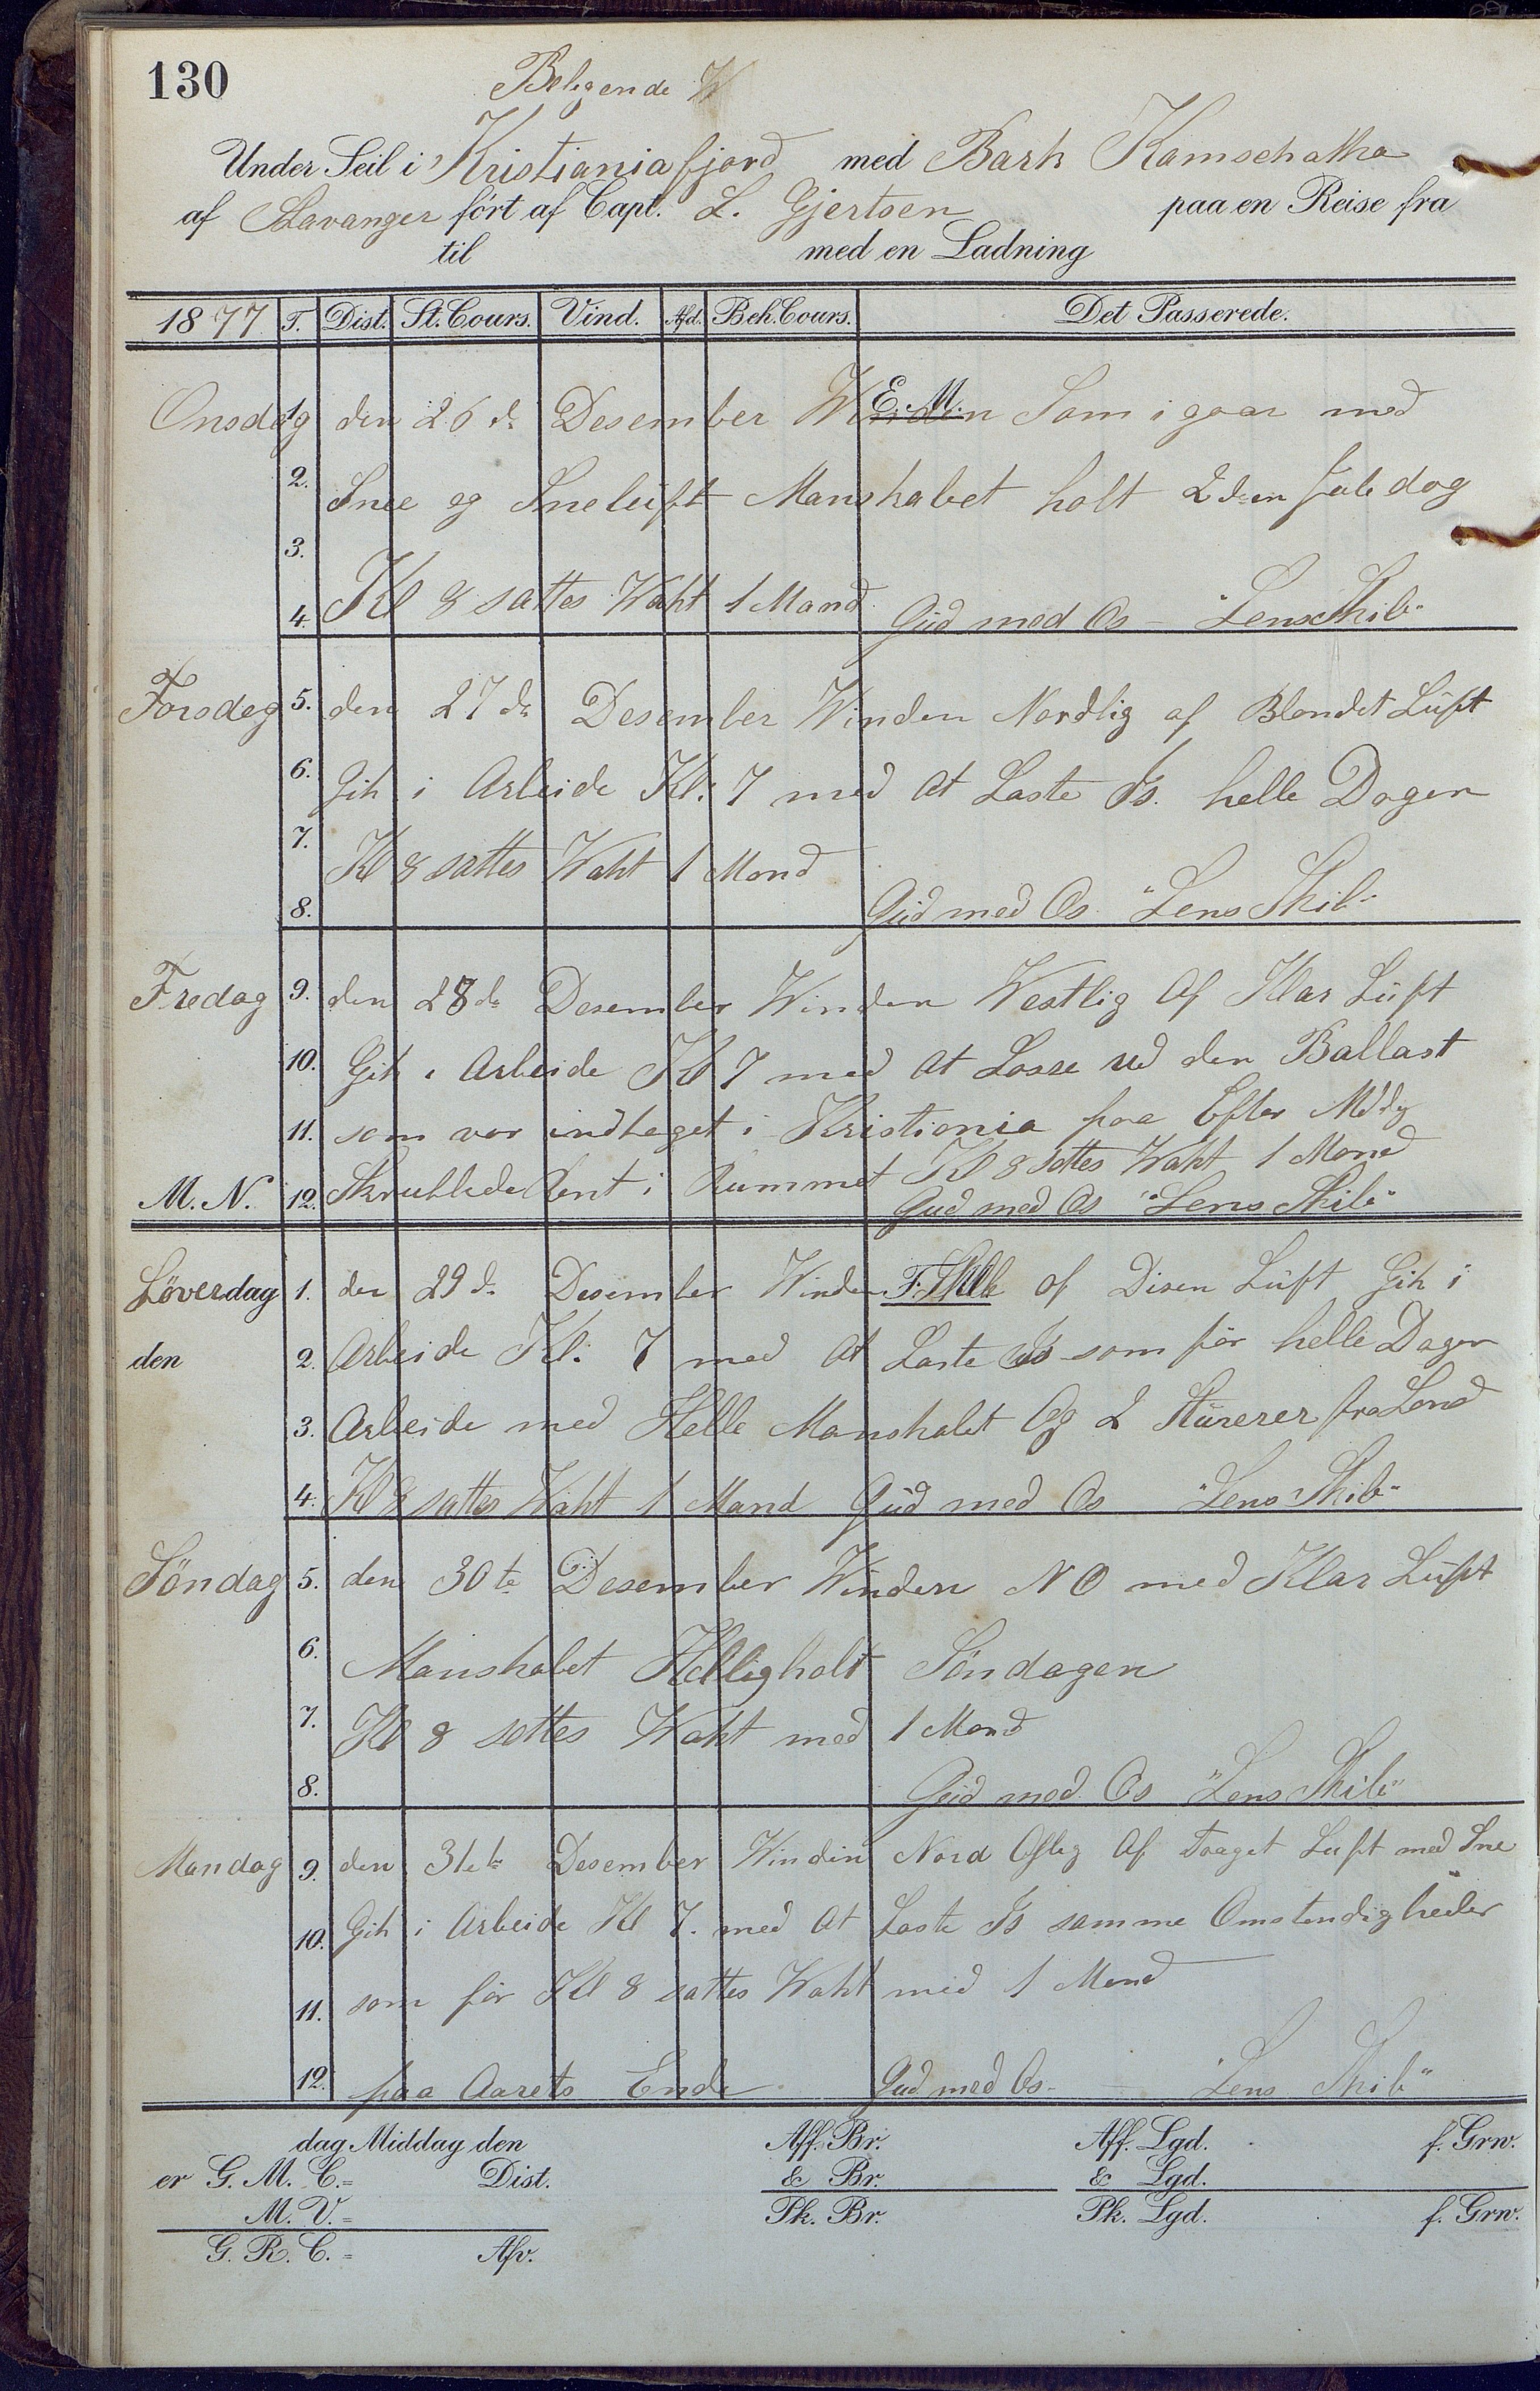 130
Beligende W
Under Seil i Kristianiafjord med Bark Kamschatka
af Stavanger ført af Capt. L. Gjertsen paa en Reise fra
til med en Ladning
1877 T. Dist. St. Cours. Vind. Afd. Beh. Cours. Det Passerede.
Onsdag 1. den 26 d. Desember Winden E. M. Som i gaar med
2. Snee og Sneluft Manskabet holt 2den Jule dag
3.
4. Kl 8 sattes Waht 1 Mand Gud med Os - "Lens Skib"
Torsdag 5. den 27 de Desember Winden Nordlig af Blandet Luft
6. Gik i Arbeide Kl. 7 med at Laste Is. helle Dagen
7. Kl 8 sattes Waht 1 Mand
8. Gud med Os "Lens Skib"
Fredag 9. den 28 de Desember Winden Westlig Af Klar Luft
10. Gik i Arbeide Kl 7 med at Losse ud den Ballast
11. som var indtaget i Kristiania paa Efter Middg
M. N. 12. Skrubbede Rent i Rummet Kl 8 sattes Waht 1 Mand
Gud med Os "Lens Skib"
Löverdag 1. den 29 d. Desember Winden F. Stille af Disen Luft Gik i
den 2. Arbeide Kl. 7 med at Laste Is som før helle Dagen
3. Arbeide med Helle Manskabet Og 2 Stürerer fra Land
4. Kl 8 sattes Waht 1 Mand Gud med Os "Lens Skib"
Söndag 5. den 30 te Desember Winden N O med Klar Luft
6. Manskabet Helligholt Söndagen
7. Kl 8 sattes Waht med 1 Mand
8. Gud med Os "Lens Skib"
Mandag 9. den 31te Desember Winden Nord Af Taaget Luft med Sne
10. Gik i Arbeide Kl 7. med at Laste Is samme Omstendigheder
11. som før Kl 8 sattes Waht med 1 Mand
12. paa Aarets Ende Gud med Os - "Lens Skib"
dag Middag den Aff. Br. Aff. Lgd. f. Grw.
er G. M. C.= Dist. & Br. & Lgd.
M. V.= Pk. Br. Pk. Lgd. f. Grw.
G. R. C.= Afv.